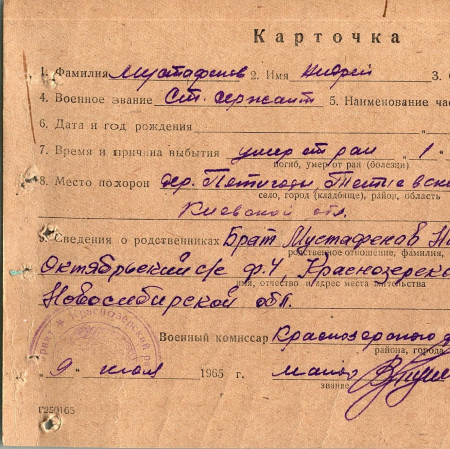 Карточка
1. Фамилия Мустафенов 2. Имя Андрей 3.
4. Военное звание Ст. сержант 5. Наименование час
6. Дата и год рождения
7. Время и причина выбытия умер от ран "1"
погиб, умер от ран (болезни)
8. Место похорон дер. Петигоры, Тетиевск
село, город (кладбище), район, область
Киевской обл.
9. Сведения о родственниках Брат Мустафенов
родственное отношение, фамилия,
Октябрьский с/с ф.4, Краснозерско
имя, отчество и адрес места жительства
Новосибирской обл.
Военный комиссар Краснозерского
района, города
9 июля 1965 г. майор
звание
Г250165